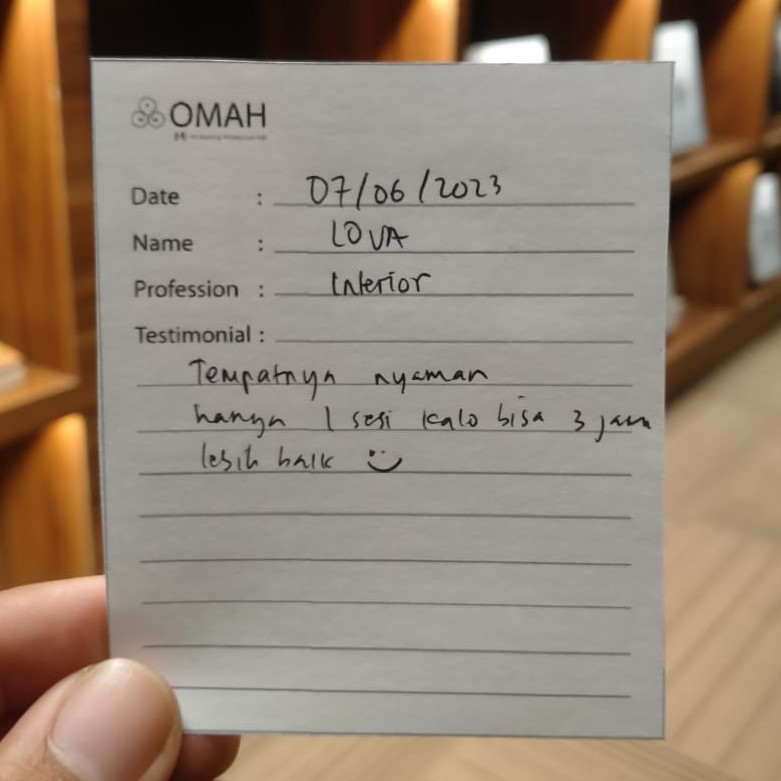 OMAH
Date : 07/06/2023
Name : LOVA
Profession : Interior
Testimonial :
Tempatnya nyaman
hanya 1 sesi kalo bisa 3 jam
lebih baik